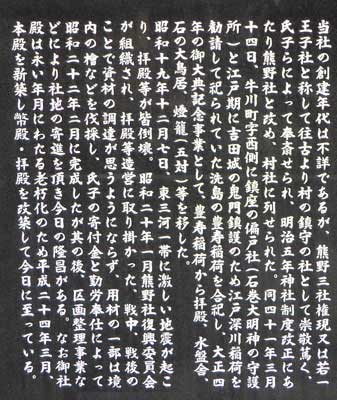 当社の創建年代は不詳であるが、熊野三社権現又は若一
王子社と称して往古より村の鎮守の社として崇敬篤く、
氏子らによって奉斎せられ、明治五年神社制度改正にあ
たり熊野社と改め、村社に列せられた。同四十一年三月
十四日、牛川町字西側に鎮座の偏戸社（石巻大明神の守護
所）と江戸期に吉田城の鬼門鎮護のため江戸深川稲荷を
勧請して祀られていた洗島の豊寿稲荷を合祀し、大正四
年の御大典記念事業として、豊寿稲荷から拝殿、水盤舎、
石の大鳥居、燈籠（五対）等を移した。
昭和十九年十二月七日、東三河一帯に激しい地震が起こ
り、拝殿等が皆倒壊。昭和二十年一月熊野社復興委員会
が組織され、拝殿等造営に取り掛かった。戦中、戦後の
ことで資材の調達が思うようにならず、用材の一部は境
内の檜などを伐採し、氏子の寄付金と勤労奉仕によって
昭和二十二年二月に完成したが其の後、区画整理事業な
どにより社地の寄進を頂き今日の隆昌がある。なお御社
殿は永い年月にわたる老朽化のため平成二十四年三月
本殿を新築し幣殿・拝殿を改築して今日に至っている。